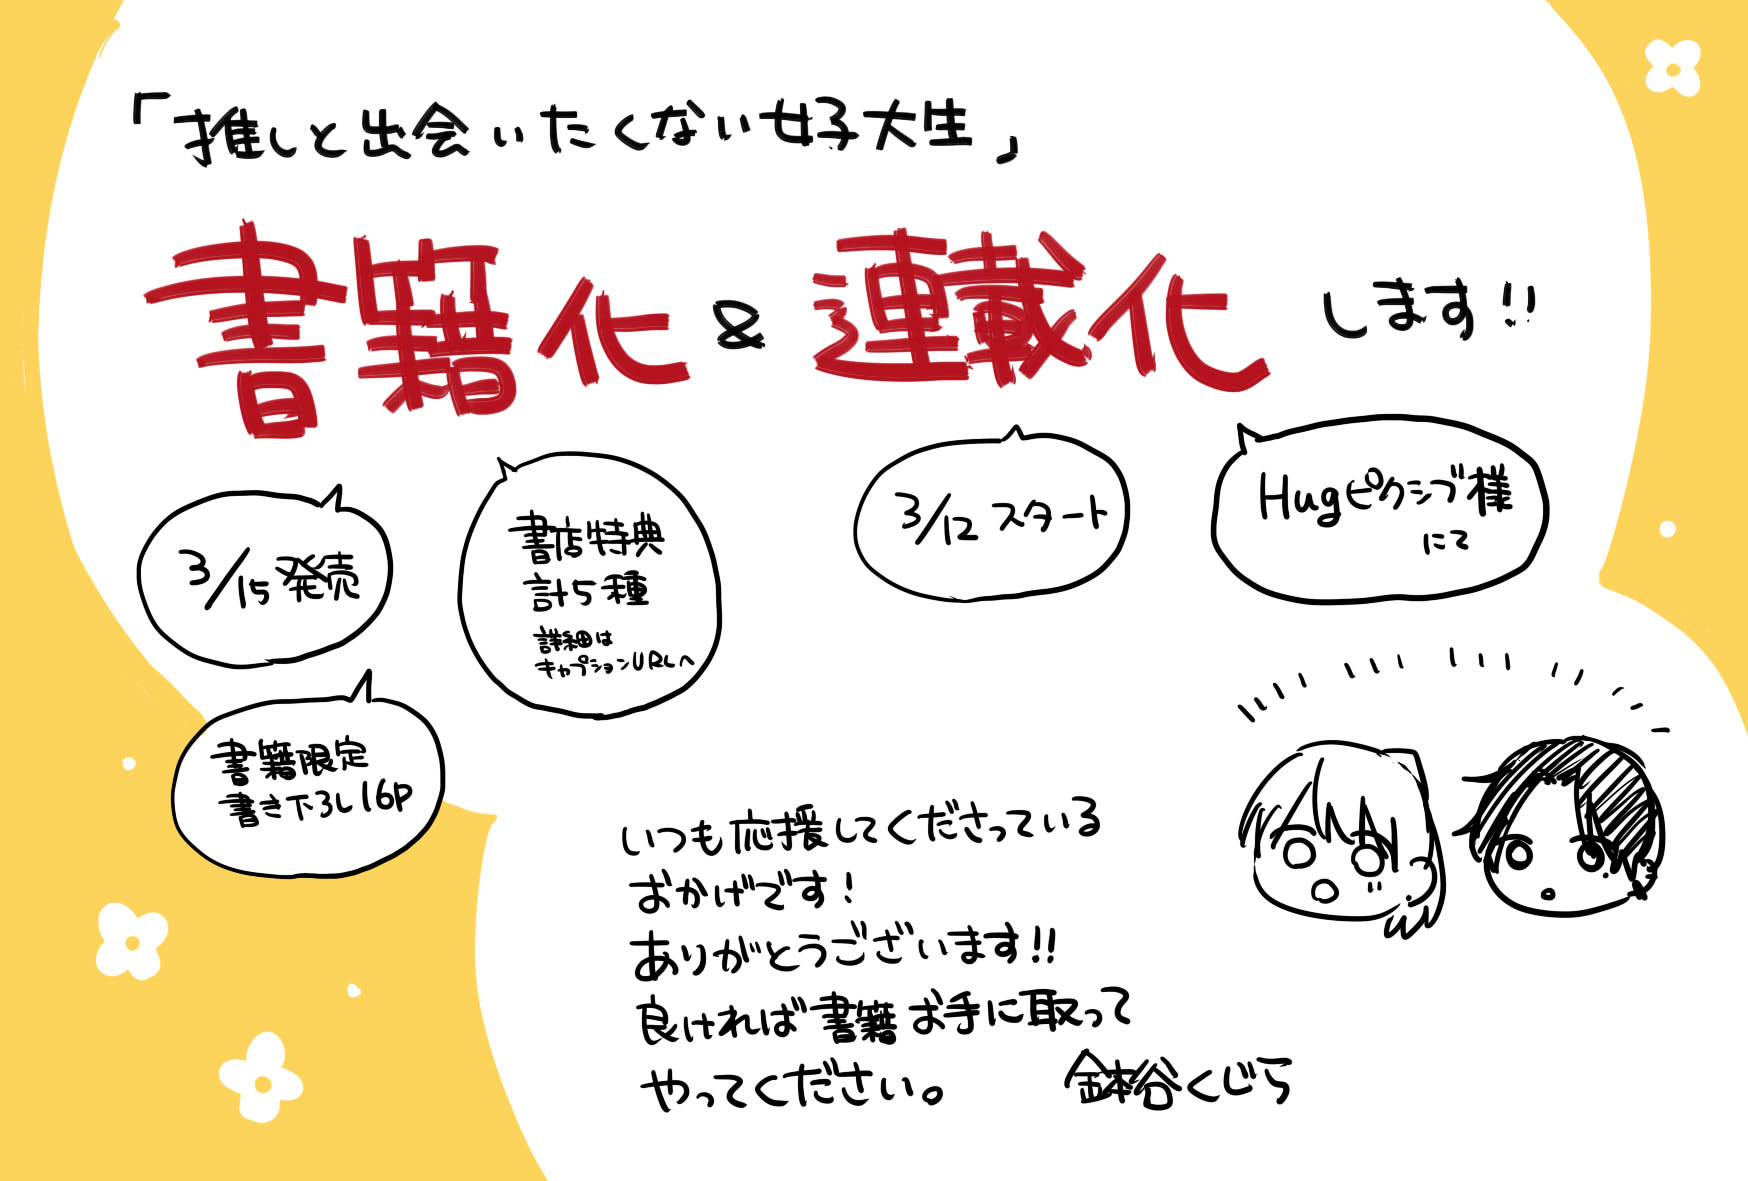 「推しと出会いたくない女子大生」
書籍化&連載化します!!
3/15発売
書店特典
計5種
詳細は
キャプションURLへ
3/12スタート
Hugピクシブ様
にて
書籍限定
書き下ろし16P
いつも応援してくださっている
おかげです!
ありがとうございます!!
良ければ書籍お手に取って
やってください。
鉢谷くじら